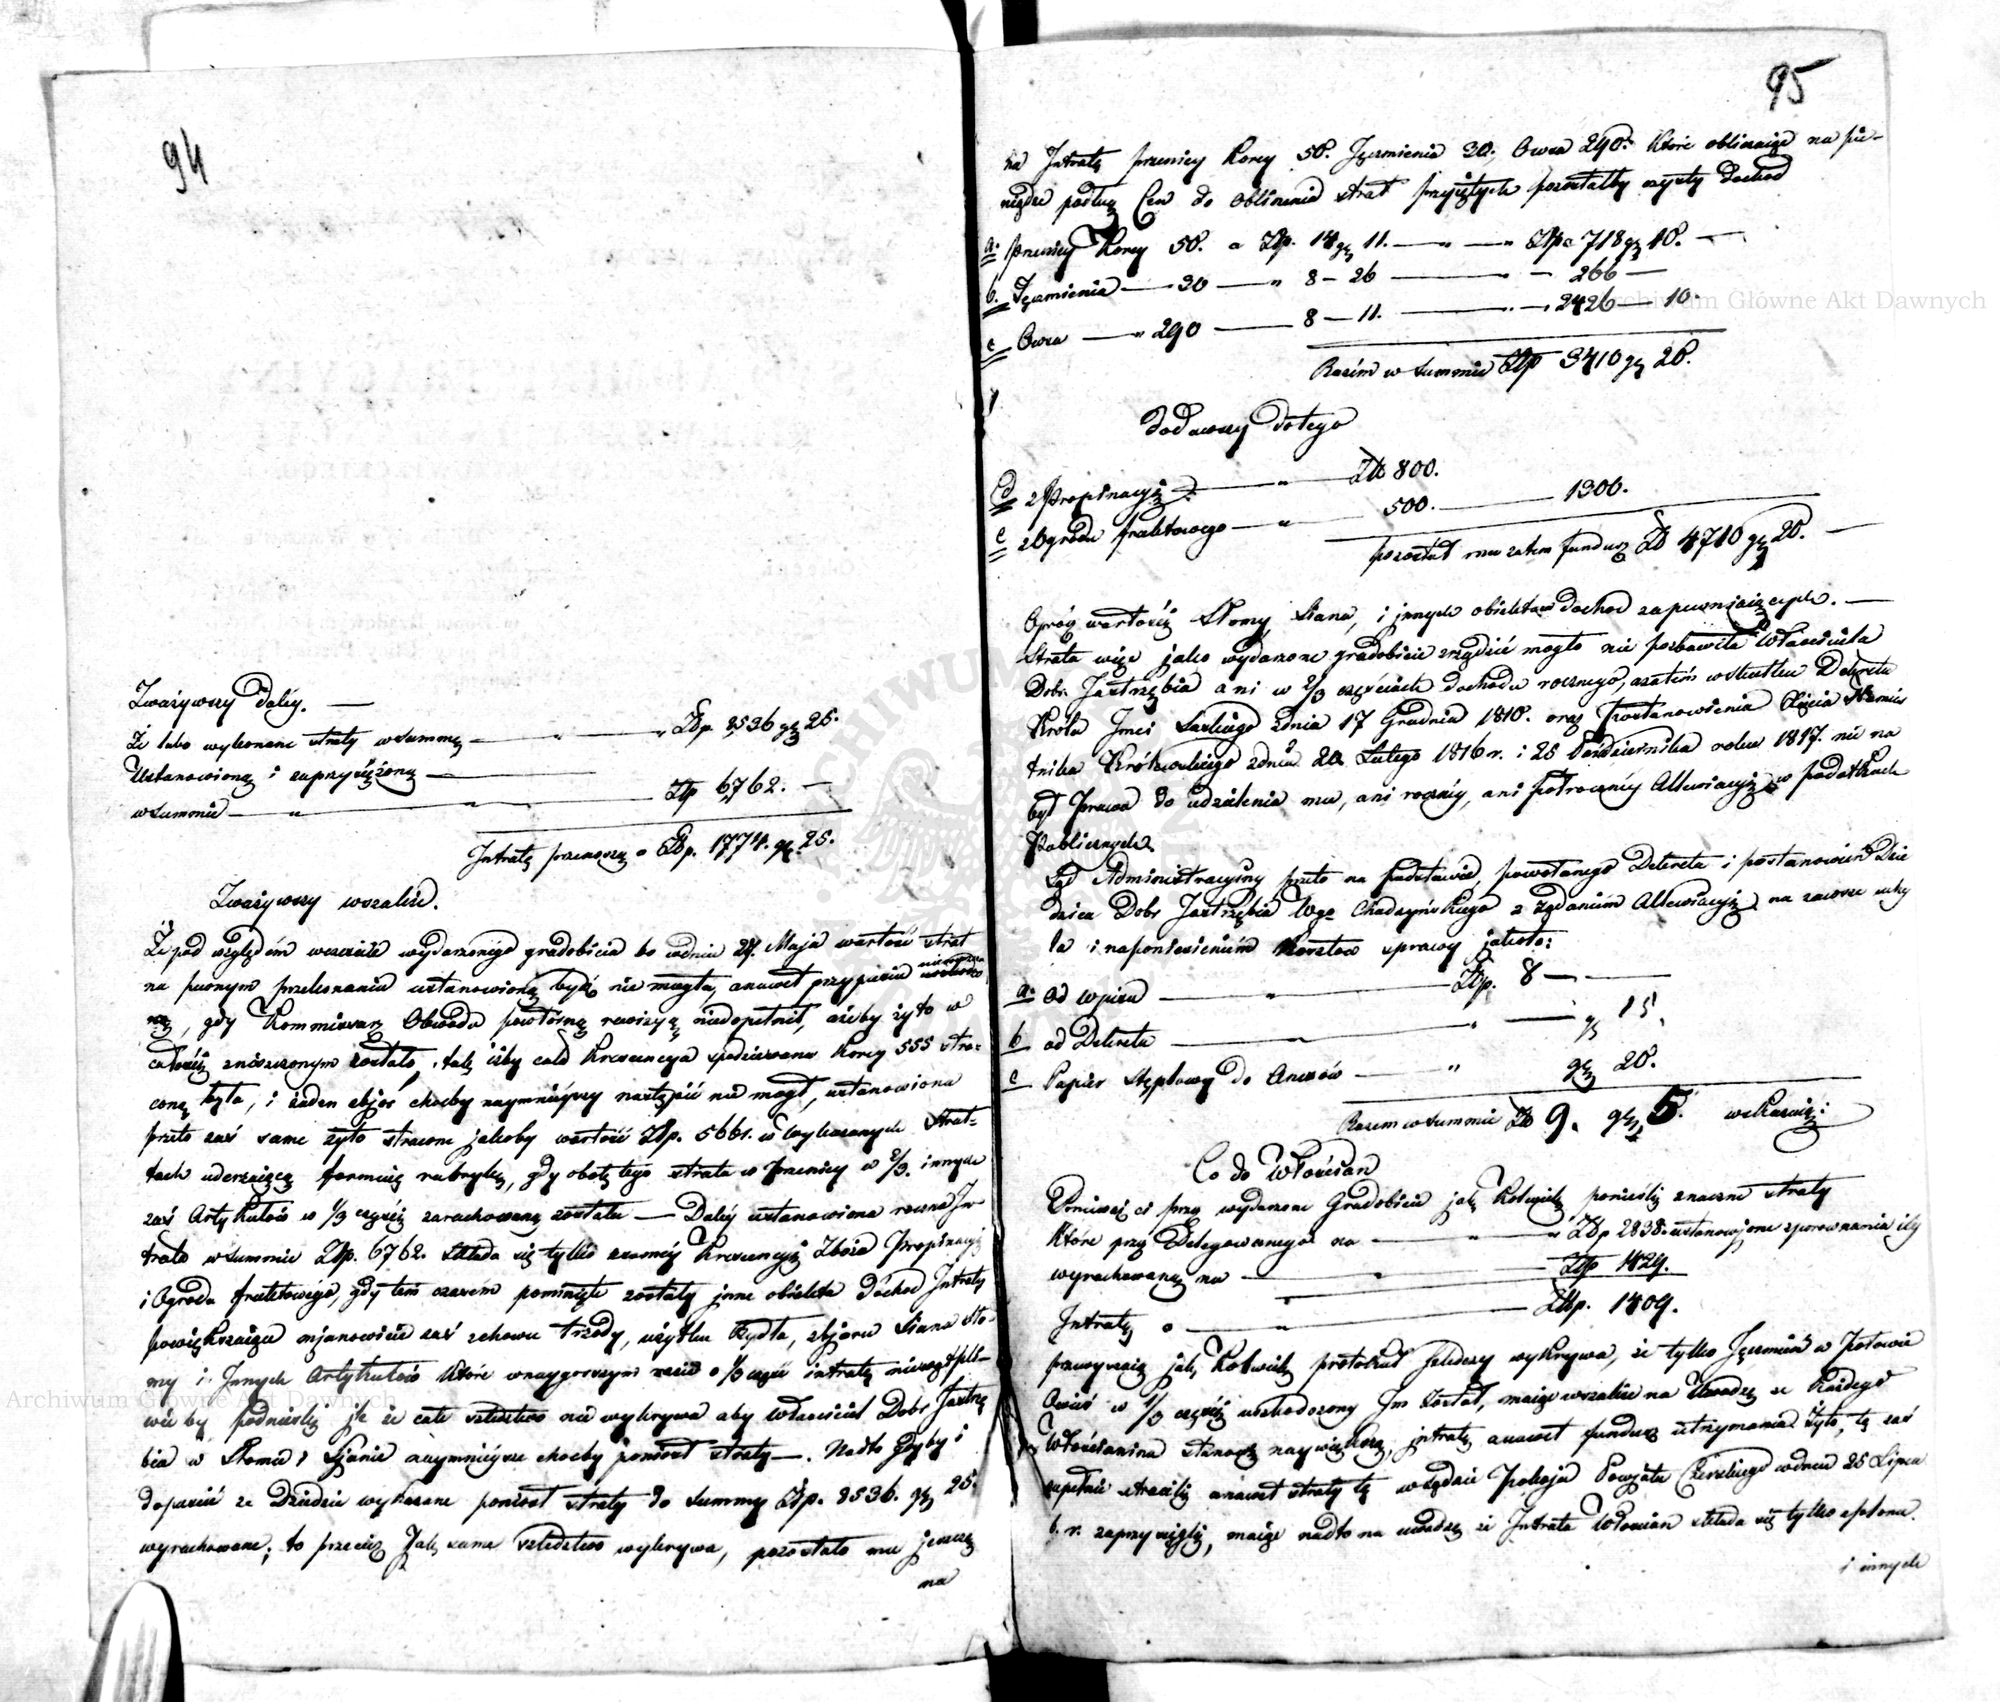 94
Zważywszy daléy. —
Że lubo wykonane straty w Summę — " — " Złp. 8536 gr 25.
Ustanowioną i zaprzysiężoną —
w Summie — " — " — Złp 6762. —
Intratę przenoszą o Złp. 1774. gr. 25.
Zważywszy wszakże.
Że pod względem wcześnie wydarzonégo gradobicia bo w dniu 27. Maja wartość strat
na pewnym przekonaniu ustanowioną bydź nie mogła, a nawet przypuszcza
gdy Kommissarz Obwodu powtórną rewizyą niedopełnił, ażeby żyto w
całości zniszczonym zostało, tak iżby cała Krescencya spodziewana Korcy 555 stra-
coną była, i żaden zbiór choćby naymnieyszy nastąpić nie mógł, ustanowiona
przeto zaś same żyto stracone jakoby wartość Złp. 5661. w wykazanych Stra-
tach uderzaiącą formuie rubrykę, gdy obok tego strata w Pszenicy w 2/3. innych
zaś Artykułów w 1/3 części zarachowaną została — Daléy ustanowiona roczna In-
trata w Summie Złp. 6762. składa się tylko z samey Krescencyi Zboża Propinacyi
i Ogrodu fruktowégo, gdy tem czasém pominięte zostały inne obiekta dochód Intraty
powiększaiące mianowicie zaś z chowu trzody, użytku bydła, zbioru Siana Sło-
my i Innych Artykułów które w naygorszym razie o 1/3 część intratę niewątpli-
wie by podniosły, jk że całe śledztwo nie wykrywa aby właściciel Dobr Jastrzę
bia w Słomie i Sianie naymnieysze choćby poniósł straty —. Nadto gdyby i
dopuścić że Dziedzic wykazane poniósł straty do Summy Złp. 8536. gr 25.
wyrachowane; to przecież Jak same śledztwo wykrywa, pozostało mu jeszcze
na
95
na Intratę pszenicy Korcy 50. Jęczmienia 30., Owsa 290. które obliczaiąc na pie-
niądze podług Cen do obliczenia strat przyjętych pozostałby czysty dochód
a. pszenicy Korcy 50. a Złp. 14 gr 11. — " — " Złp 718 gr 10. —
b. Jęczmienia — 30 — " 8 — 26 — " — 266 —
c Owsa — " 290 — 8 — 11. — " — 2426 — 10.
Razem w Summie Złp 3410 gr 20.
dodawszy do tego
d z Propinacyi — " — Złp 800.
e z Ogrodu fruktowego — " 500. — 1300.
pozostał mu zatem fundusz Zł 4710 gr 20. —
Oprócz wartości Słomy, Siana, i innych obiektów dochód zapewniaiących. —
Strata więc jako wydarzone gradobicie zrządzić mogło nie pozbawiła Właściciela
Dobr Jastrzębia ani w 2/3 częściach dochodu rocznego, a zatém w skutku Dekretu
Króla Jmci Saskiego z dnia 17 Grudnia 1810. oraz Postanowienia Xięcia Namies
tnika Królewskiego z dnia 20 Lutego 1816 r. i 25 Października roku 1817. nie na
był Prawa do udzielenia mu, ani roczney, ani półroczney Allewiacyi w podatkach
Publicznych.
Sąd Administracyiny przeto na podstawie powołanego Dekretu i postanowień Dzie
dzica Dobr Jastrzębia Wgo Chądzyńskiego z żądaniém Allewiacyi na zawsze uchy
la i na poniesieniém Kosztów sprawy jakoto:
a. Od wpisu — " — Złp. 8 — —
b od Dekretu — " — gr 15.
c Papier stęplowy do Anexów — " gr 20.
Razem w Summie Zł 9. gr 5. wskazuie:
Co do Włościan
Ponieważ ci przez wydarzone Gradobicie jak Kolwiek ponieśli znaczne straty
Które przez Delegowanego na — " — " Złp 2838. ustanowione z porównania ich
wyrachowaną na — " — Złp 1429.
Intratę o — " — Złp. 1409.
przewyższaią jak Kolwiek protokół śledczy wykrywa, że tylko Jęczmień w Połowie
Owies w 1/3 części uszkodzony Im został, maiąc wszakże na Uwadze że Każdego
Włościanina stanowi naywiększą intratę a nawet fundusz utrzymania żyto, tę zaś
zupełnie stracili a nawet stratę tę w Sądzie Pokoju Powiatu Czerskiego w dniu 25 Lipca
b. r. zaprzysięgli, maiąc nadto na uwadze że Intrata Włościan składa się tylko z plonu.
i innych